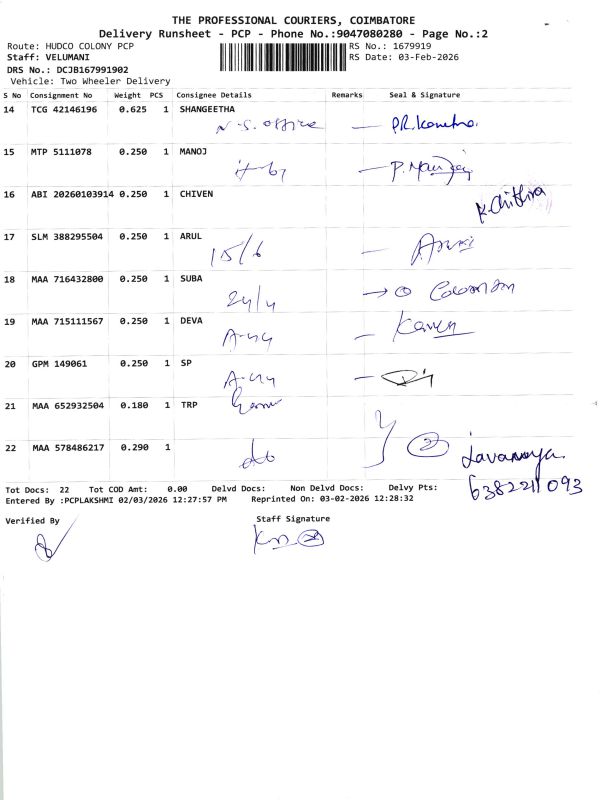 THE PROFESSIONAL COURIERS, COIMBATORE
Delivery Runsheet - PCP - Phone No.:9047080280 - Page No.:2
Route: HUDCO COLONY PCP RS No.: 1679919
Staff: VELUMANI RS Date: 03-Feb-2026
DRS No.: DCJB167991902
Vehicle: Two Wheeler Delivery
S No Consignment No Weight PCS Consignee Details Remarks Seal & Signature
14 TCG 42146196 0.625 1 SHANGEETHA
N.S. office
15 MTP 5111078 0.250 1 MANOJ
16 ABI 20260103914 0.250 1 CHIVEN
K.Chithra
17 SLM 388295504 0.250 1 ARUL
15/6
18 MAA 716432800 0.250 1 SUBA
24/4
19 MAA 715111567 0.250 1 DEVA
20 GPM 149061 0.250 1 SP
21 MAA 652932504 0.180 1 TRP
22 MAA 578486217 0.290 1
do 2 Lavanaya
6382211093
Tot Docs: 22 Tot COD Amt: 0.00 Delvd Docs: Non Delvd Docs: Delvy Pts:
Entered By :PCPLAKSHMI 02/03/2026 12:27:57 PM Reprinted On: 03-02-2026 12:28:32
Verified By Staff Signature